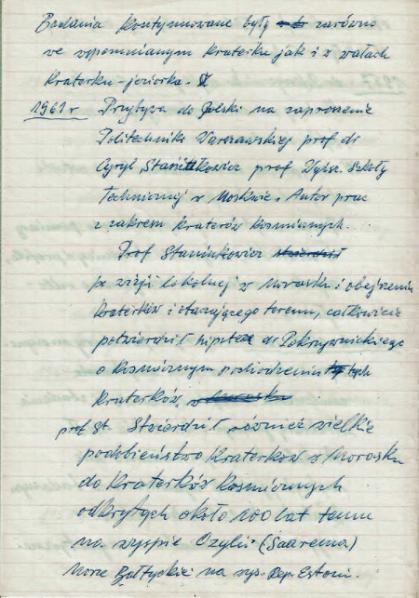 Badania kontynuowane były zarówno
we wspomnianym kraterku jak i z wałach
kraterku-jeziorka.
1961 r Przybywa do Polski na zaproszenie
Politechniki Warszawskiej prof dr
Cyryl Staniukowicz prof Wyższ. Szkoły
Technicznej w Moskwie. Autor prac
z zakresu kraterów kosmicznych.
Prof Staniukowicz stwierdził
po wizji lokalnej w Morasku i obejrzeniu
kraterków i otaczającego terenu, całkowicie
potwierdził hipotezę dr Pokrzywnickiego
o kosmicznym pochodzeniu tych
kraterków.
prof. St. Stwierdził również wielkie
podobieństwo kraterków w Morasku
do kraterków kosmicznych
odkrytych około 100 lat temu
na wyspie Ozylii (Saarema)
Morze Bałtyckie na wys. Rep. Estoni.